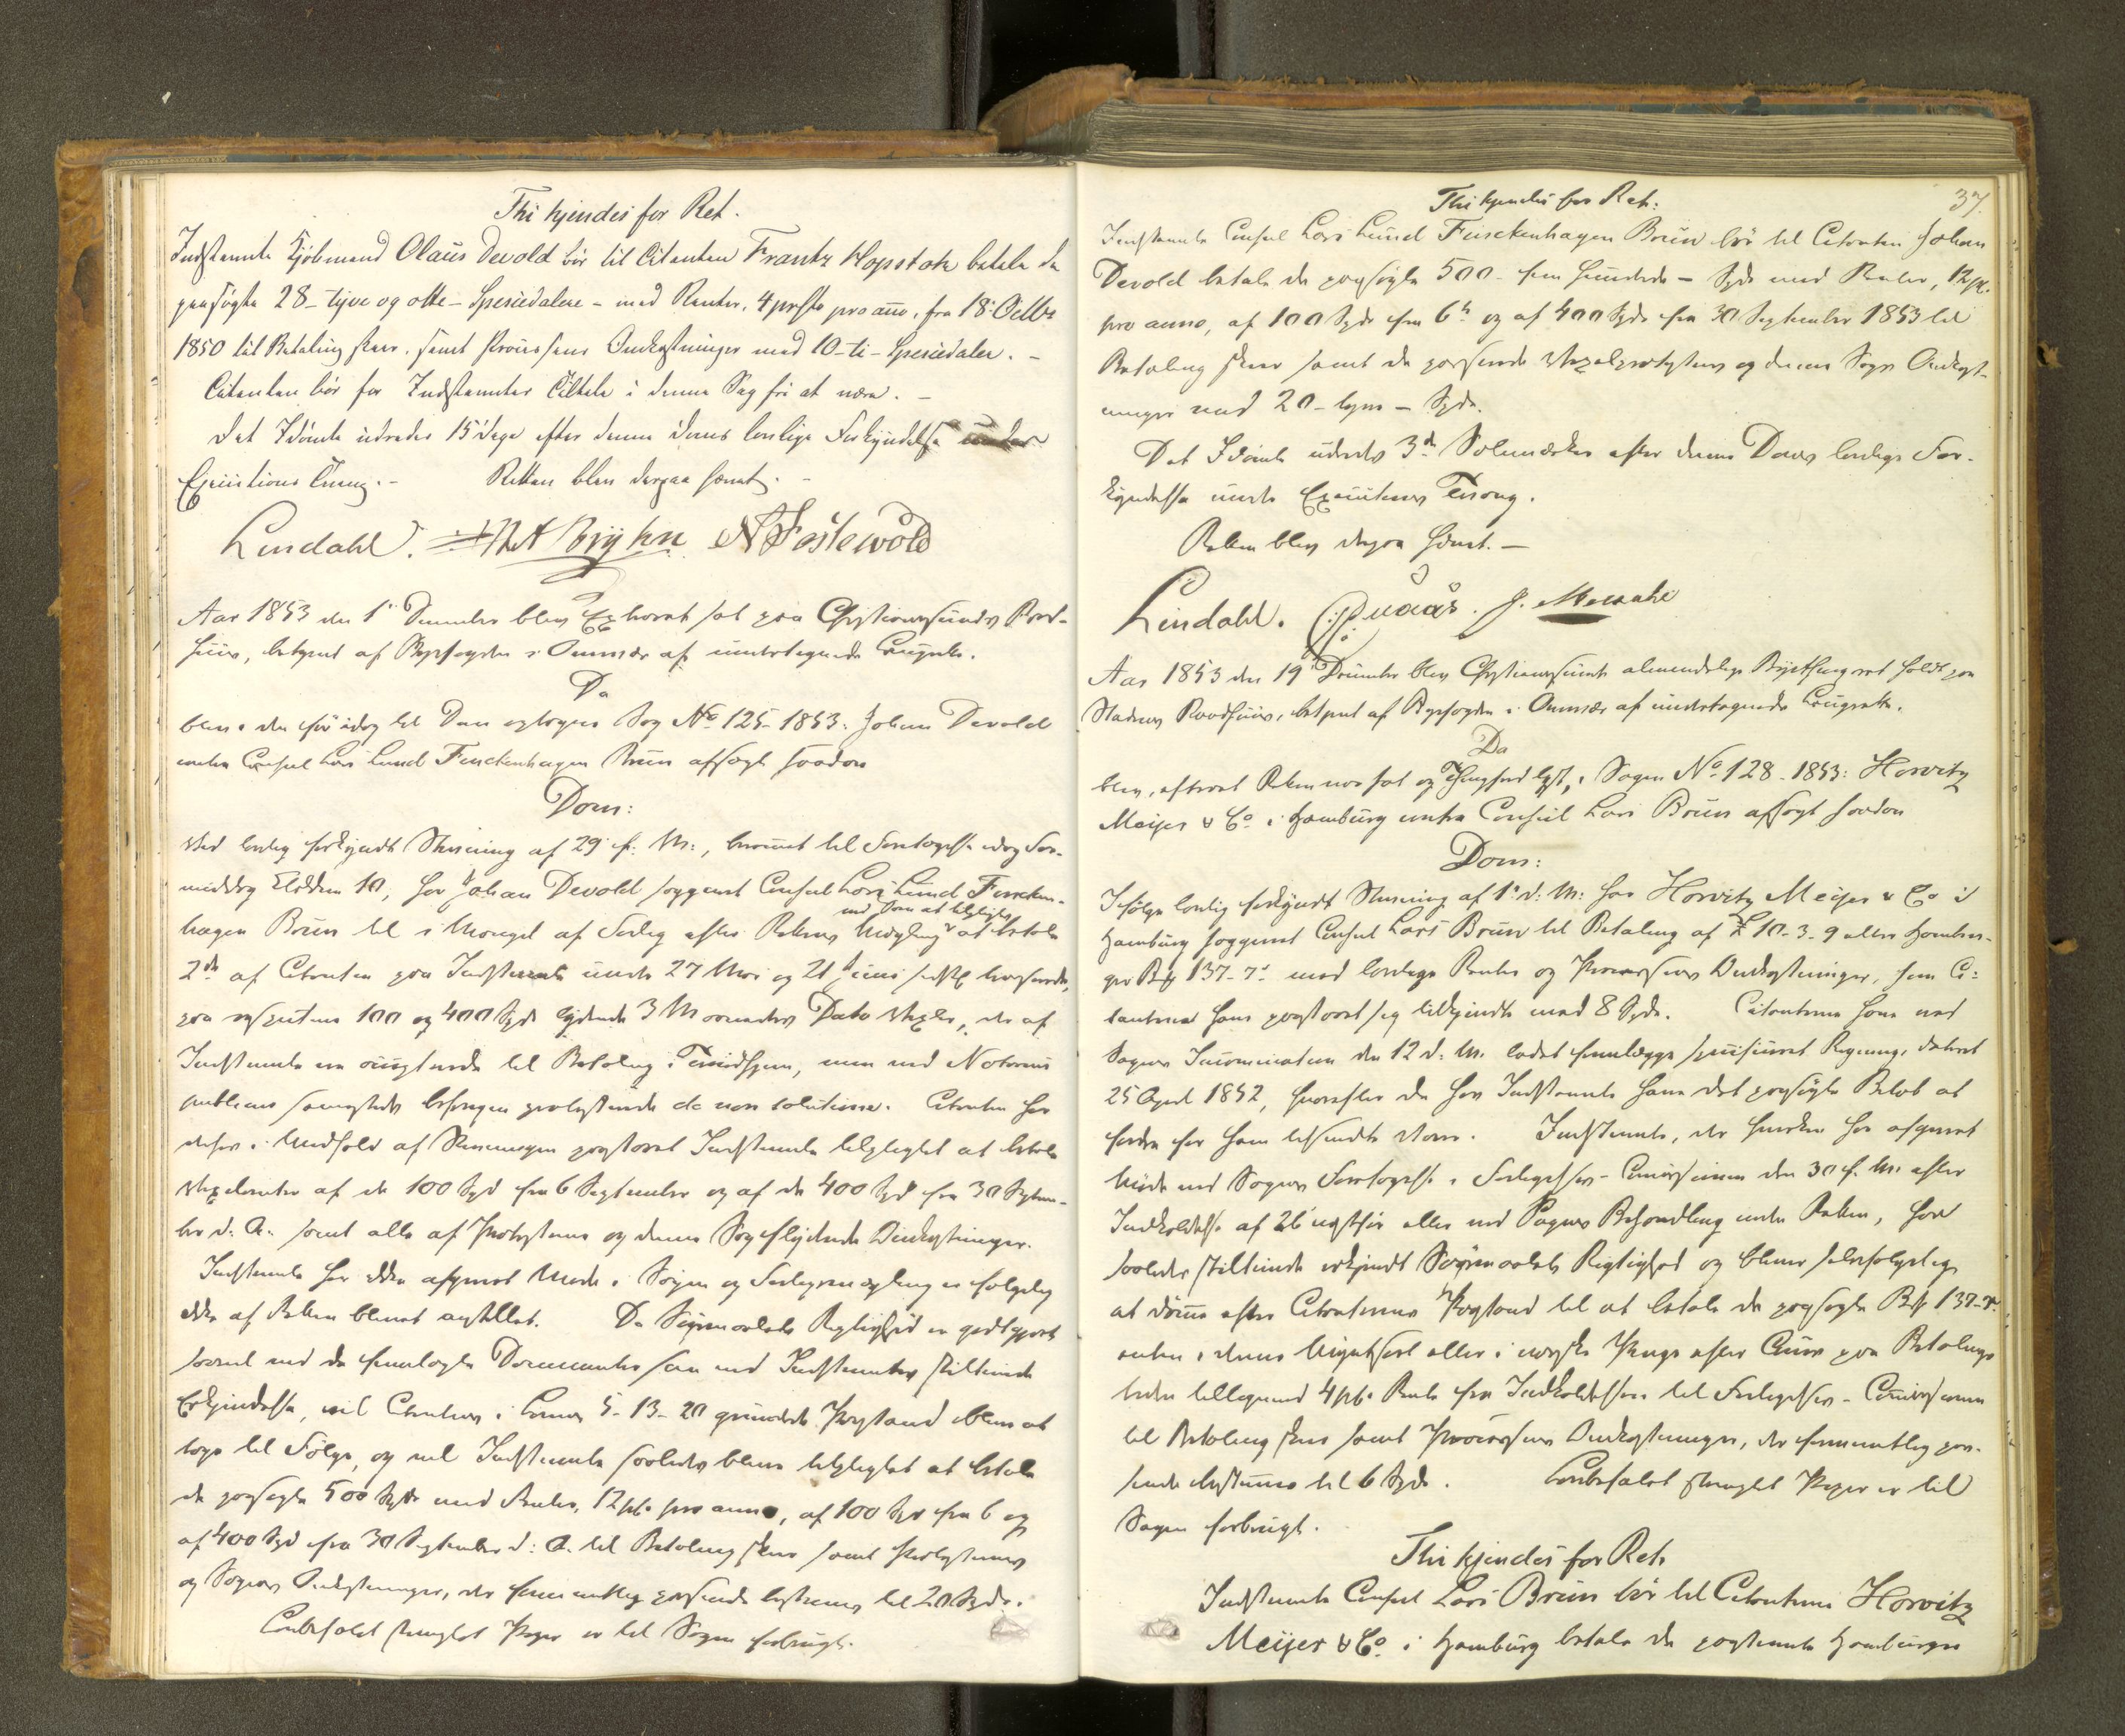 Thi kjendes for Ret.
Indstevnte Kjøbmand Olaus Devold bør til Citanten Frantz Klopstok betale de
paasøgte 28 – tyve og otte – Speciedaler – med Renter, 4 procto pro anno, fra 18. Octbr
1850 til Betaling skeer, samt Processens Omkostninger med 10 – ti – Speciedaler. –
Citanten bør for Indstevntes Tiltale i denne Sag fri at være. –
Det Idømte udredes 15 Dage efter denne Doms lovlige Forkyndelse under
Executions Tvang. – Retten blev derpaa hævet. –
Lindahl.
Aar 1853 den 1. December blev Extraret sat paa Christianssunds Raad-
huus, betjent af Byfogden i Overvær af undertegnede Laugrette.
Da
blev i den før idag til Dom optagne Sag No 125 – 1853: Johan Devold
contra Consul Lars Lund Finckenhagen Bruun afsagt saadan
Dom:
Ved lovlig forkyndt Stevning af 29 f. M., berammet til Foretagelse idag For-
middag Klokken 10, har Johan Devold sagsøgt Consul Lars Lund Fincken-
hagen Bruun til i Mangel af Forlig efter Rettens Mægling ved Dom at tilpligtes at betale
2de af Citanten paa Indstevnte under 27 Mai og 21 Juni sidstl.
paa respective 100 og 400 Spd lydende 3 Maaneders Dato Vexler, der af
Indstevnte ere til Betaling i Trondhjem, men ved Notarius
publicus sammesteds protesterede de non solutione. Citanten har
derfor i Medhold af Stevningen paastaaet Indstevnte tilpligtet at betale
Vexelrenter af de 100 Spd fra 6 September og af de 400 Spd fra 30 Septem-
ber d. A. samt alle af Protesterne og denne Sag flydende Omkostninger.
Indstevnte har ikke afgivet Møde i Sagen og Forligsmægling er følgelig
ikke af Retten blevet anstillet. Da Søgsmaalets Rigtighed er godtgjort
saavel ved de fremlagte Documenter som ved Indstevntes stiltiende
Erkjendelse, vil Citantens i Lovens 5-13-20 grundede Paastand blive at
tage til Følge, og vil Indstevnte saaledes blive tilpligtet at betale
de paasøgte 500 Spd med Renter, 12 pct. pro anno, af 100 Spd fra 6 og
af 400 Spd fra 30 September d. A. til Betaling skeer samt Protesternes
og Sagens Omkostninger, der sammenlagt passende bestemmes til 20 Spd.
Lovbefalet stemplet Papir er til Sagen forbrugt.
37.
Thi kjendes for Ret:
Indstevnte Consul Lars Lund Finckenhagen Bruun bør til Citanten Johan
Devold betale de paasøgte 500 – fem hundrede – Spd med Renter, 12 pct.
pro anno, af 100 Spd fra 6te og af 400 Spd fra 30 September 1853 til
Betaling skeer samt de passerede Vexelprotesters og denne Sags Omkost-
ninger med 20 – tyve – Spd.
Det Idømte udredes 3de Solemærker efter denne Doms lovlige For-
kyndelse under Executions Tvang.
Retten blev derpaa hævet. –
Lindahl.
Aar 1853 den 19 December blev Christianssunds almindelige Bytingsret holdt paa
Stadens Raadhuus, betjent af Byfogden i Overvær af undertegnede Laugrette.
Da
blev, efterat Retten var sat og Thingfred lyst, i Sagen No 128 – 1853: Horvitz
Meijer & Co i Hamburg contra Consul Lars Bruun afsagt saadan
Dom:
Ifølge lovlig forkyndt Stevning af 1. d. M. har Horvitz Meijer & Co i
Hamburg sagsøgt Consul Lars Bruun til Betaling af £ 10-3-9 eller Hambur-
137-7 med lovlige Renter og Processens Omkostninger, som Ci-
tanterne have paastaaet sig tilkjendte med 8 Spd. Citanterne have ved
Sagens Incamination den 12 d. M. ladet fremlægge specificeret Regning, dateret
25 April 1852, hvorefter de hos Indstevnte have det paasøgte Beløb at
fordre for ham tilsendte Varer. Indstevnte, der hverken har afgivet
Møde ved Sagens Foretagelse i Forligelses-Commissionen den 30 f. M. efter
Indkaldelse af 26 eller ved Sagens Behandling under Retten, har
saaledes stiltiende erkjendt Søgsmaalets Rigtighed og bliver selvfølgelig
at dømme efter Citanternes Paastand til at betale de paasøgte 137-7
enten i denne Myntsort eller i norske Penge efter Cours paa Betalings
tiden tilligemed 4 pct. Rente fra Indkaldelsen til Forligelses-Commissionen
til Betaling skeer samt Processens Omkostninger, der sammenlagt pas-
sende bestemmes til 6 Spd. Lovbefalet stemplet Papir er til
Sagen forbrugt.
Thi kjendes for Ret:
Indstevnte Consul Lars Bruun bør til Citanterne Horvitz
Meijer & Co. i Hamburg betale de paastevnte Hamburger